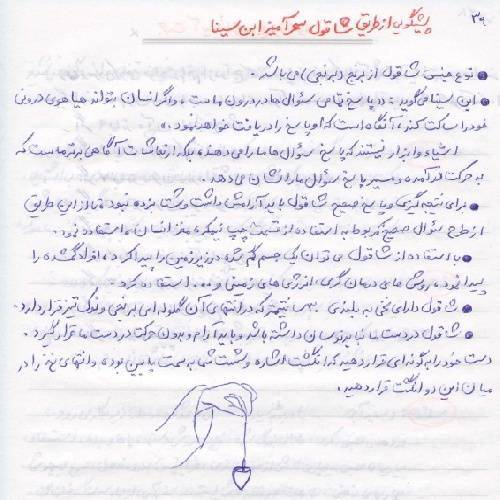 ۳۶
پیشگویی از طریق شاقول سحرآمیز ابن سینا
● نوع جنس شاقول از برنج (برنجی) می باشد.
● ابن سینا می گوید: «پاسخ تمامی سئوال ها در درون ماست، و اگر انسان بتواند هیاهوی درونی
خود را ساکت کند، آنگاه است که او پاسخ را دریافت خواهد نمود.»
اشیاء و ابزار نیستند که پاسخ سئوال ها را به ما می دهند، بلکه ارتعاشات آگاهی برتر ماست که
به حرکت درآمده و مسیر پاسخ سئوال ما را نشان می دهد.
● برای نتیجه گیری و پاسخ صحیح شاقول باید آرامش داشت و شتابزده نبود تا از این طریق
از طرح سئوال صحیح که مربوط به استفاده از قسمت چپ نیمکره مغز انسان، استفاده نمود.
● با استفاده از شاقول می توان یک جسم گم شده در زیر زمین را پیدا کرد، افراد گمشده را
پیدا نمود، روش های درمان گری، انرژی های زمینی و ... استفاده کرد.
● شاقول دارای نخی به بلندی بیست سانتیمتر که در انتهای آن گلوله ای برنجی و نوک تیز قرار دارد.
● شاقول در دست ما نباید نوسان داشته باشد و باید آرام و بدون حرکت در دست ما قرار گیرد.
دست خود را به گونه ای قرار دهید که انگشت اشاره و شست شما به سمت پایین بوده و انتهای نخ را در
میان این دو انگشت قرار دهید.